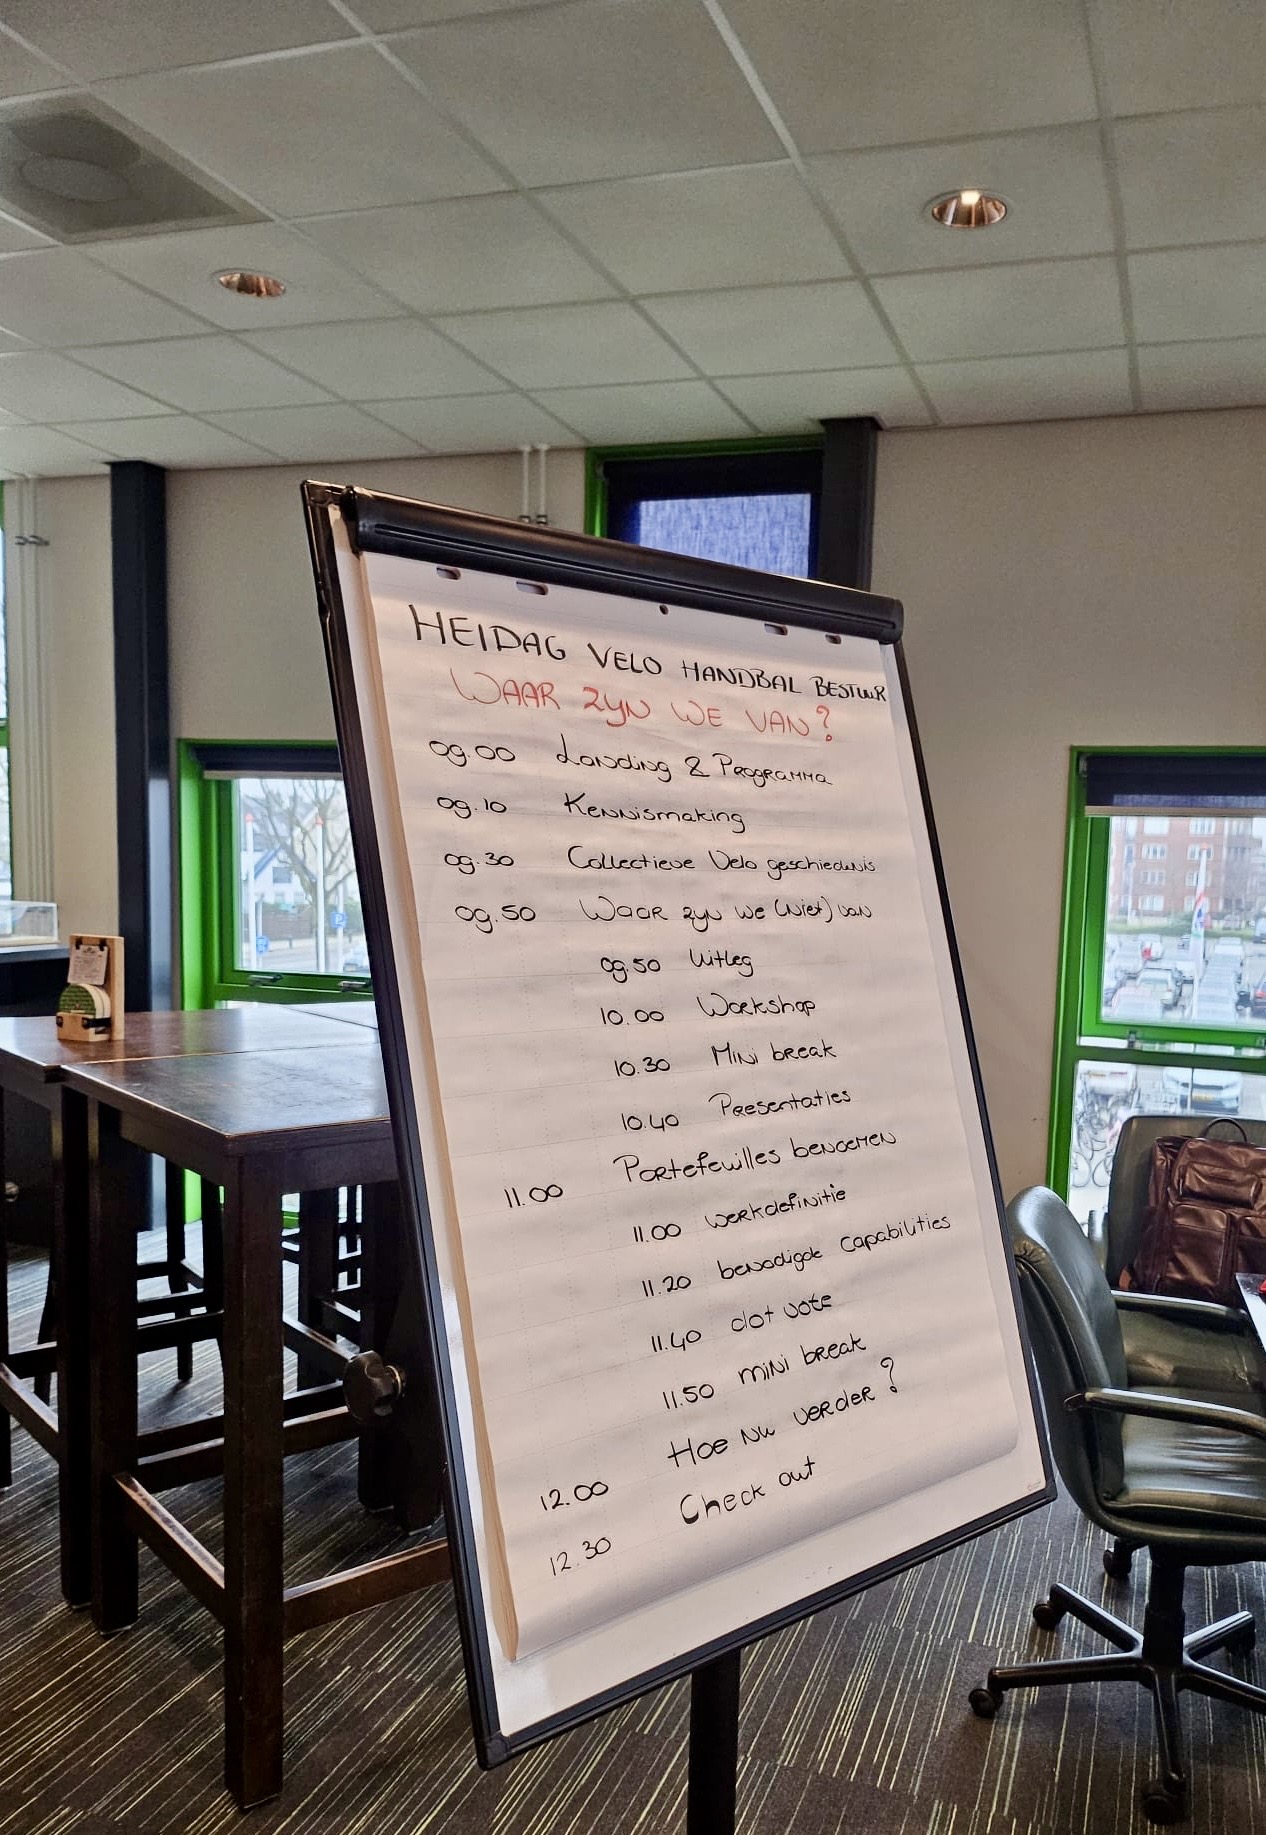 HEIDAG VELO HANDBAL BESTUUR
WAAR ZIJN WE VAN?
09.00 Landing & Programma
09.10 Kennismaking
09.30 Collectieve Velo geschiedenis
09.50 Waar zijn we (niet) van
09.50 Uitleg
10.00 Workshop
10.30 Mini break
10.40 Presentaties
11.00 Portefeuilles benoemen
11.00 werkdefinitie
11.20 benodigde capabilities
11.40 dot vote
11.50 mini break
12.00 Hoe nu verder?
12.30 Check out